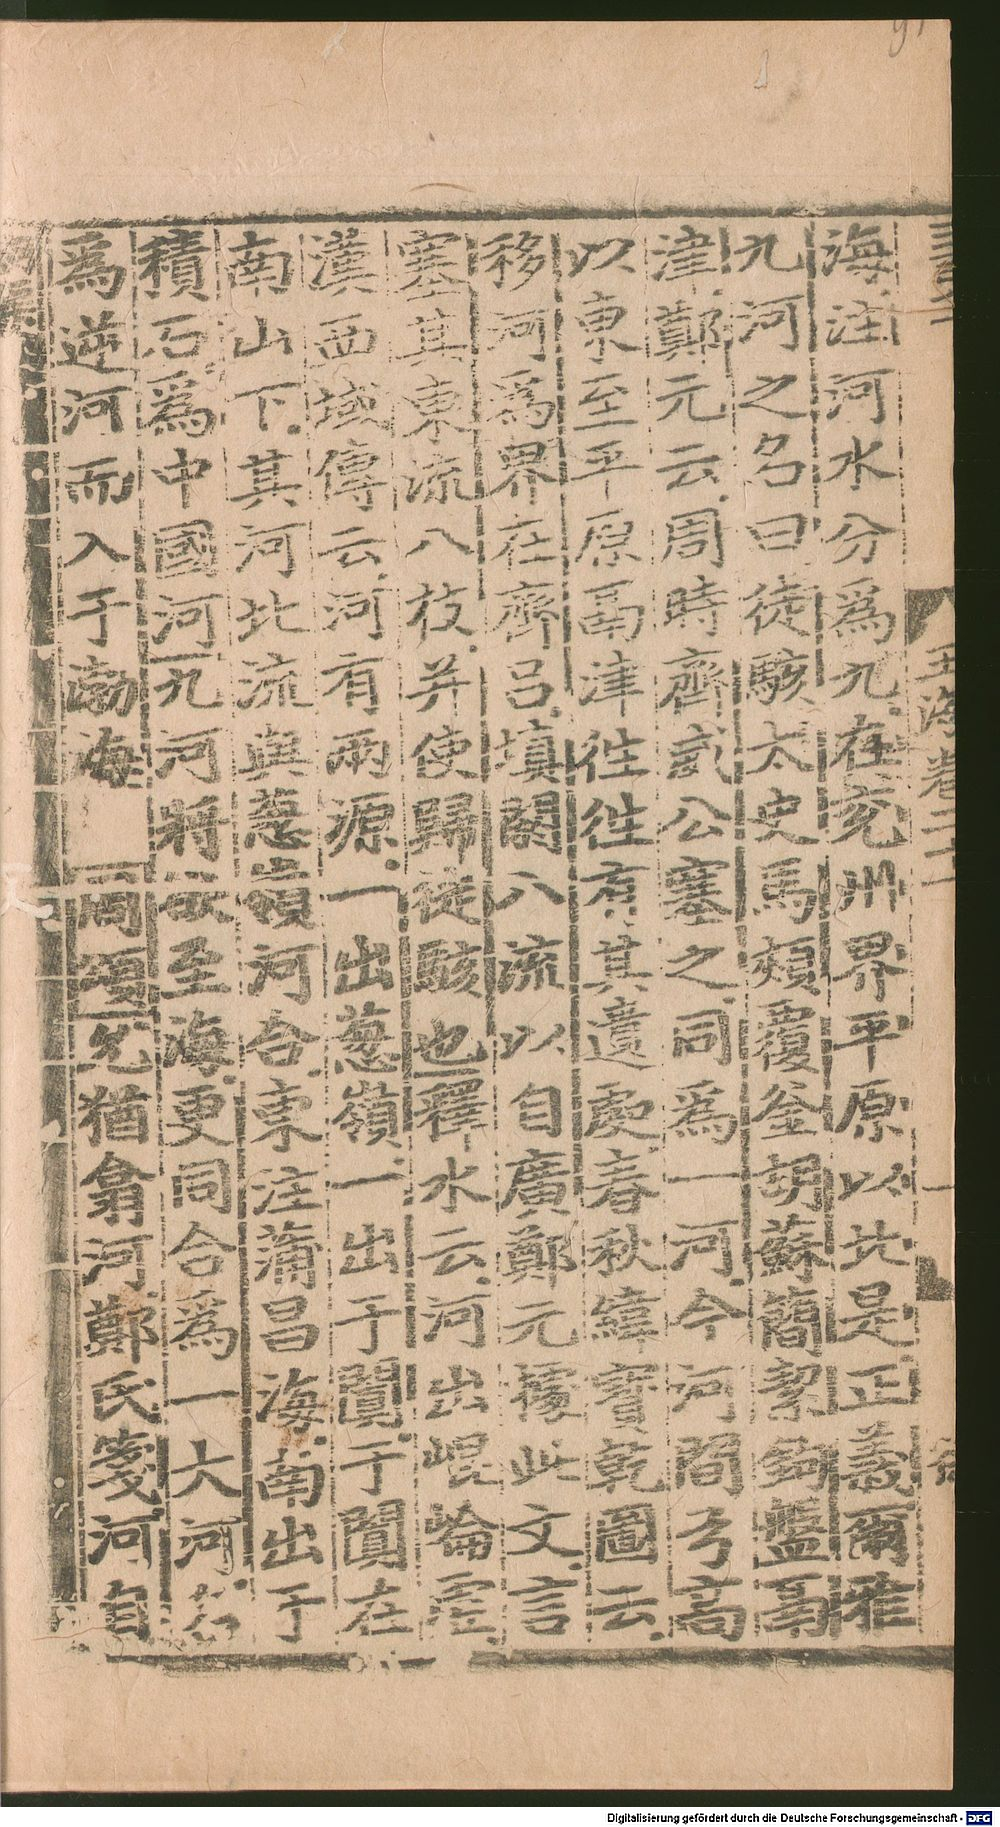 海注河水分爲九在兖州界平原以北是正義爾雅
九河之名曰徒駭太史馬頰覆釡胡蘇簡絜鉤盤鬲
津鄭元云周時齊桓公塞之同爲一河今河間弓高
以東至平原鬲津往往有其遺處春秋緯寶乾圖云
移河爲界在齊吕填閼八流以自廣鄭元據此文言
塞其東流八枝并使歸徒駭也釋水云河出崐崘虚
漢西域傳云河有兩源一出葱嶺一出于闐于闐在
南山下其河北流與葱嶺河合東注蒲昌海南出于
積石爲中國河九河將欲至海更同合爲一大河名
爲逆河而入于渤海 周頌允猶翕河鄭氏箋河自
玉海卷二十
Digitalisierung gefördert durch die Deutsche Forschungsgemeinschaft - DFG